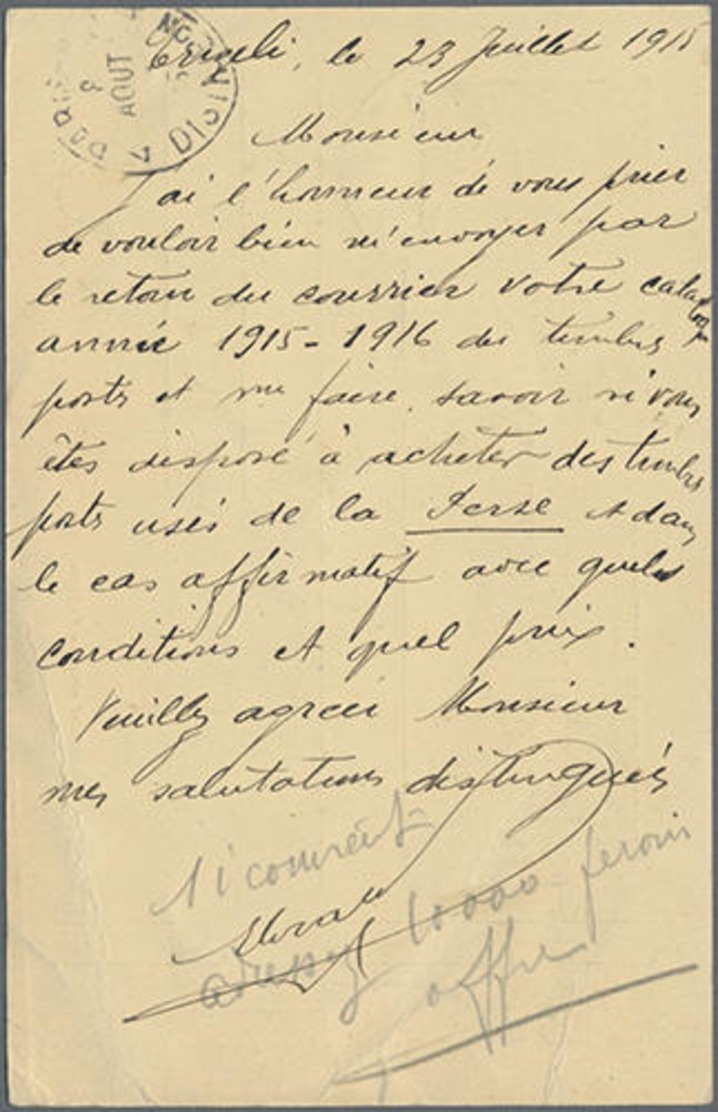 Enzeli, le 23 Juillet 1915
Monsieur
J'ai l'honneur de vous prier
de vouloir bien m'envoyer par
le retour du courrier votre catalogue
année 1915-1916 des timbres
posts et me faire savoir si vous
êtes disposé à acheter des timbres
posts usés de la Perse et dans
le cas affirmatif avec quels
conditions et quel prix.
Veuillez agréer Monsieur
mes salutations distingués
10000 ferons
offre
PARIS
8
AOUT
DISTRI